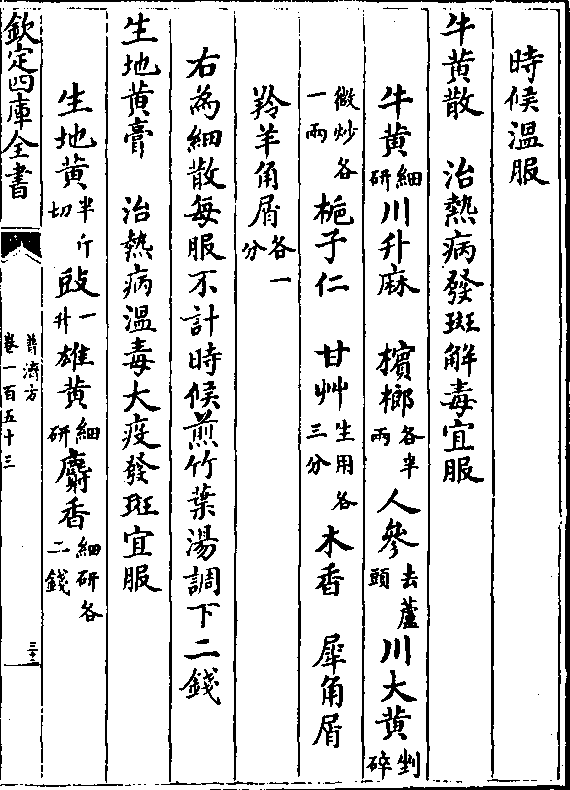 時候温服
牛黄散　治熱病發斑解毒宜服
牛黄細研川升麻　檳榔各半兩人參去蘆頭川大黄剉碎
微炒各一兩梔子仁　甘艸生用各三分木香　犀角屑
羚羊角屑各一分
右為細散每服不計時候煎竹葉湯調下二錢
生地黄膏　治熱病温毒大疫發斑宜服
生地黄半斤切豉一升雄黄細研麝香細研各二錢
欽定四庫全書
普濟方
卷一百五十三
三十二